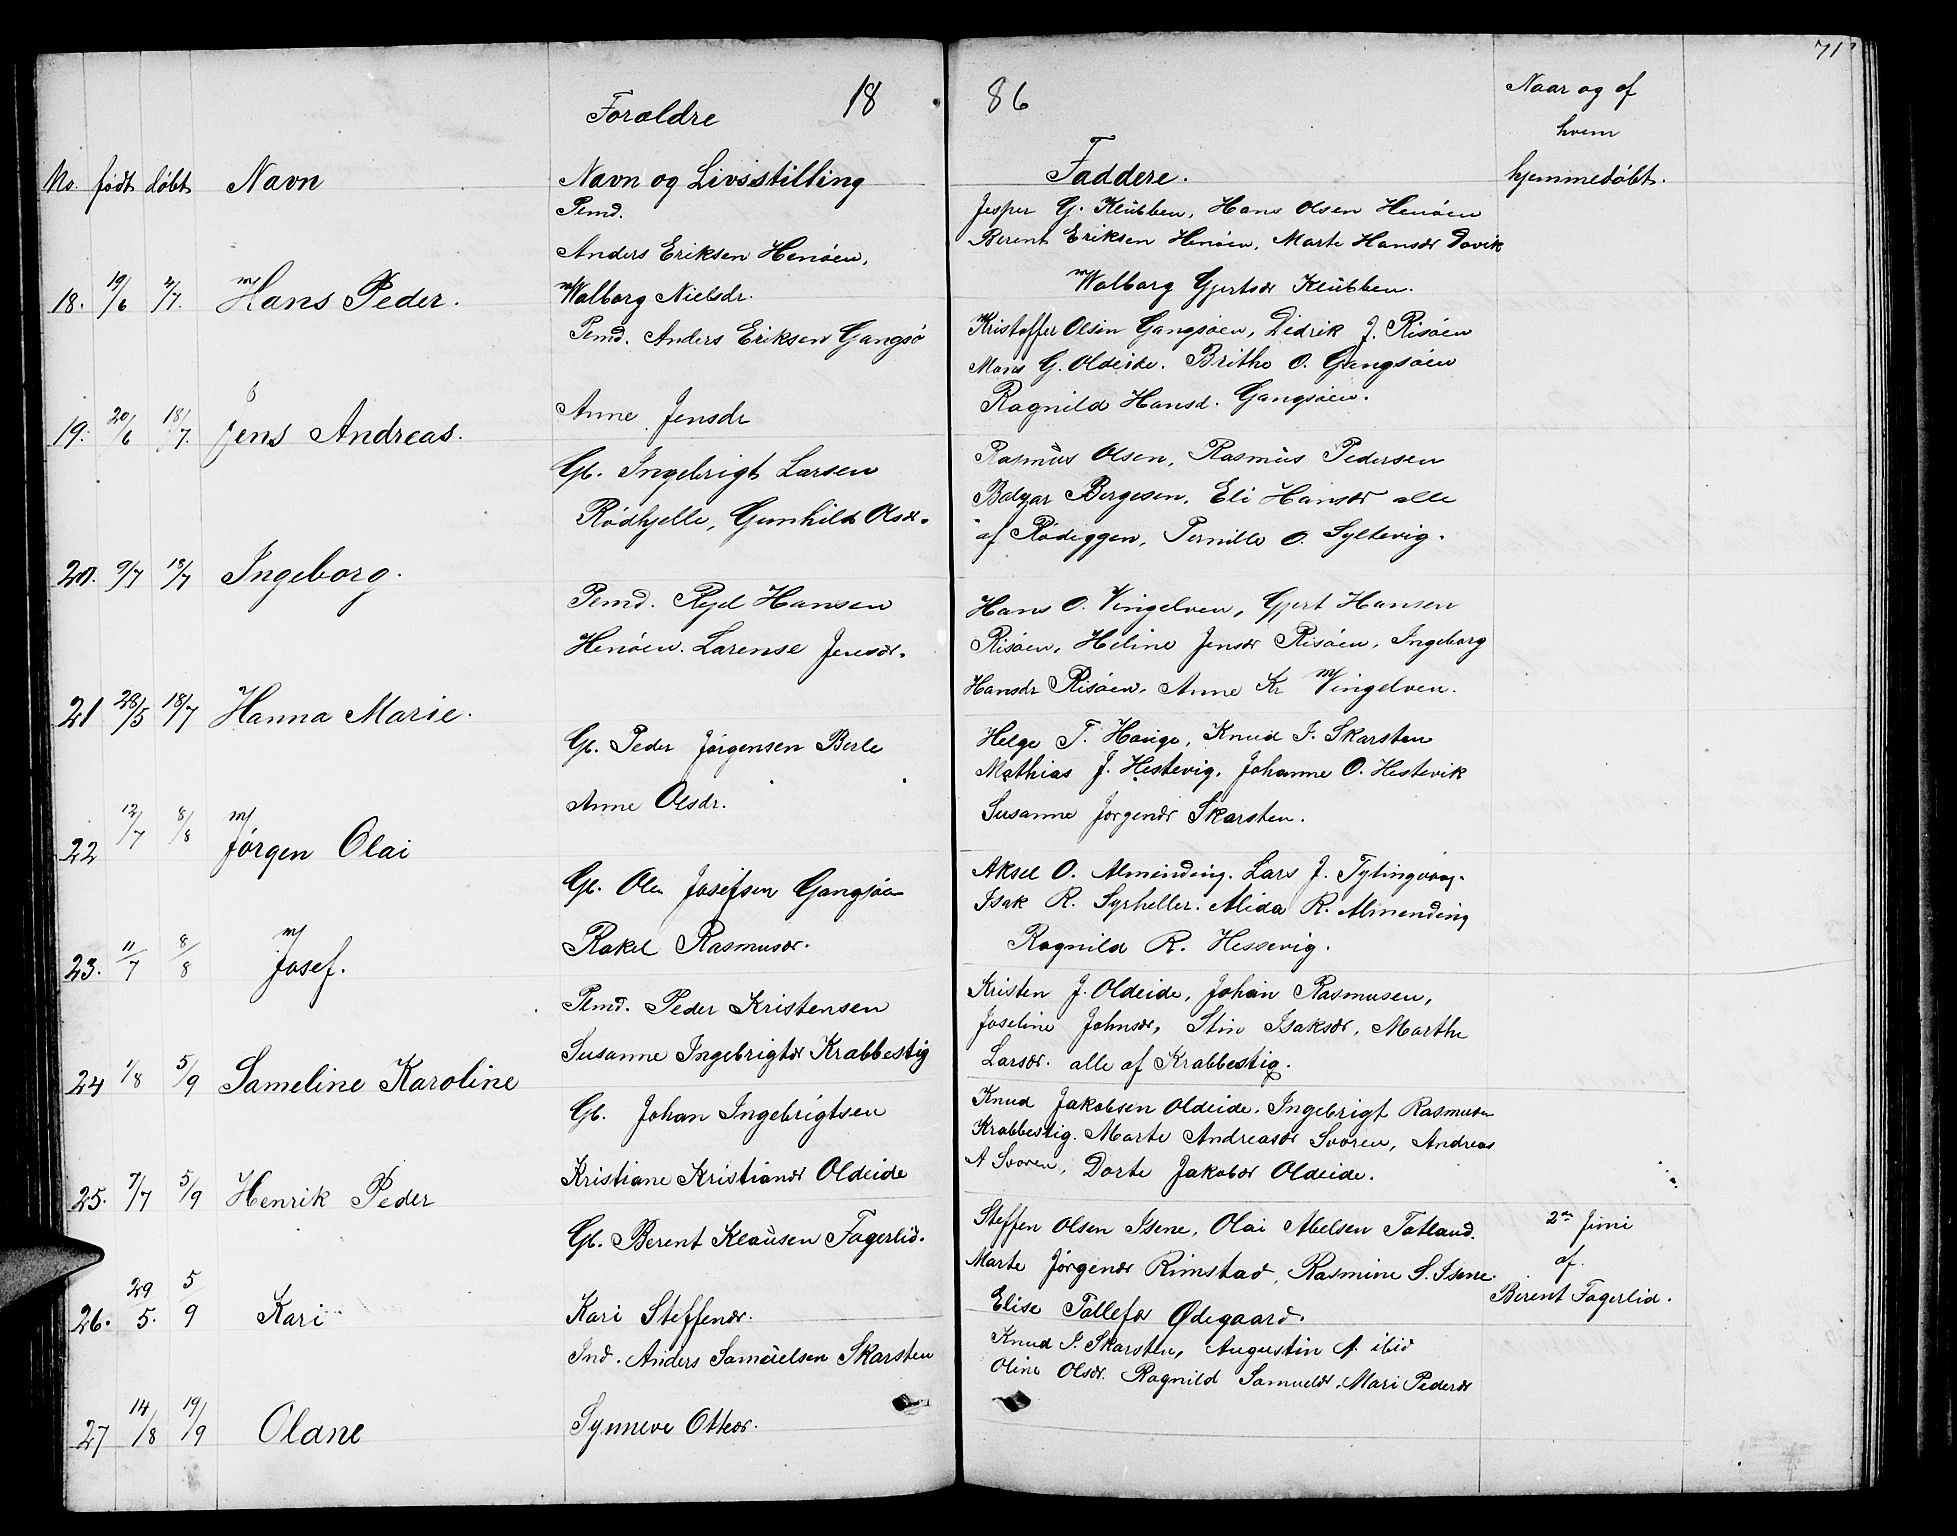 71
18 86
Forældre
Naar og af
hvem
hjemmedøbt.
No. født døbt Navn
Navn og Livsstilling
Faddere.
18. 19/6 4/7. Hans Peder.
Pemd.
Anders Eriksen Henøen,
Walborg Nielsdr.
Jesper G. Klubben, Hans Olsen Henøen
Berent Eriksen Henøen, Marte Hansdr Davik
Walborg Gjertsdr Klubben.
19. 20/6 18/7. Jens Andreas.
Pemd. Anders Eriksen Gangsø
Anne Jensdr
Kristoffer Olsen Gangsøen, Didrik J. Risøen
Mons G. Oldeide. Brithe O. Gangsøen
Ragnild Hansd. Gangsøen.
20. 9/7 18/7 Ingeborg.
Gb. Ingebrigt Larsen
Rødhjelle, Gunhild Olsdr.
Rasmus Olsen, Rasmus Pedersen
Balzar Børgesen, Eli Hansdr alle
af Rødeggen, Pernille O. Syltevig.
21 28/5 18/7 Hanna Marie.
Pemd. Rejel Hansen
Henøen. Larense Jensdr.
Hans O. Vingelven, Gjert Hansen
Risøen, Heline Jensdr Risøen, Ingeborg
Hansdr Risøen, Anne Kr Vingelven.
22 12/7 8/8 Jørgen Olai
Gb. Peder Jørgensen Berle
Anne Olsdr.
Helge T. Hauge, Knud I. Skarsten
Mathias J. Hestevig, Johanne O. Hestevik
Susanne Jørgendr Skarsten.
23. 11/7 8/8 Josef.
Gb. Ole Josefsen Gangsøen
Rakel Rasmusdr.
Aksel O. Almending. Lars J. Tytingvaag.
Isak R. Syrheller. Alida R. Almending
Ragnild R. Hessevig.
24 1/8 5/9 Sameline Karoline
Pemd. Peder Kristensen
Susanne Ingebrigtdr Krabbestig
Kristen J. Oldeide, Johan Rasmusen,
Joseline Johnsdr, Stin Isaksdr, Marthe
Larsdr. alle af Krabbestig.
25. 7/7 5/9 Henrik Peder
Gb. Johan Ingebrigtsen
Kristiane Kristiandr Oldeide
Knud Jakobsen Oldeide. Ingebrigt Rasmusen
Krabbestig. Marte Andreasdr Svoren, Andreas
A Svoren, Dorte Jakobdr Oldeide.
26. 29/5. 5/9 Kari
Gb. Berent Klausen Fagerlid.
Kari Steffendr.
Steffen Olsen Isene, Olai Abelsen Tatland.
Marte Jørgendr Rimstad, Rasmine S. Isene.
Elise Tollefdr Ødegaard.
2en Juni
af
Berent Fagerlid.
27 14/8 19/9 Olane
Ind. Anders Samuelsen Skarsten
Synneve Ottedr.
Knud I. Skarsten, Augustin A. ibid
Oline Olsdr. Ragnild Samueldr, Mari Pederdr